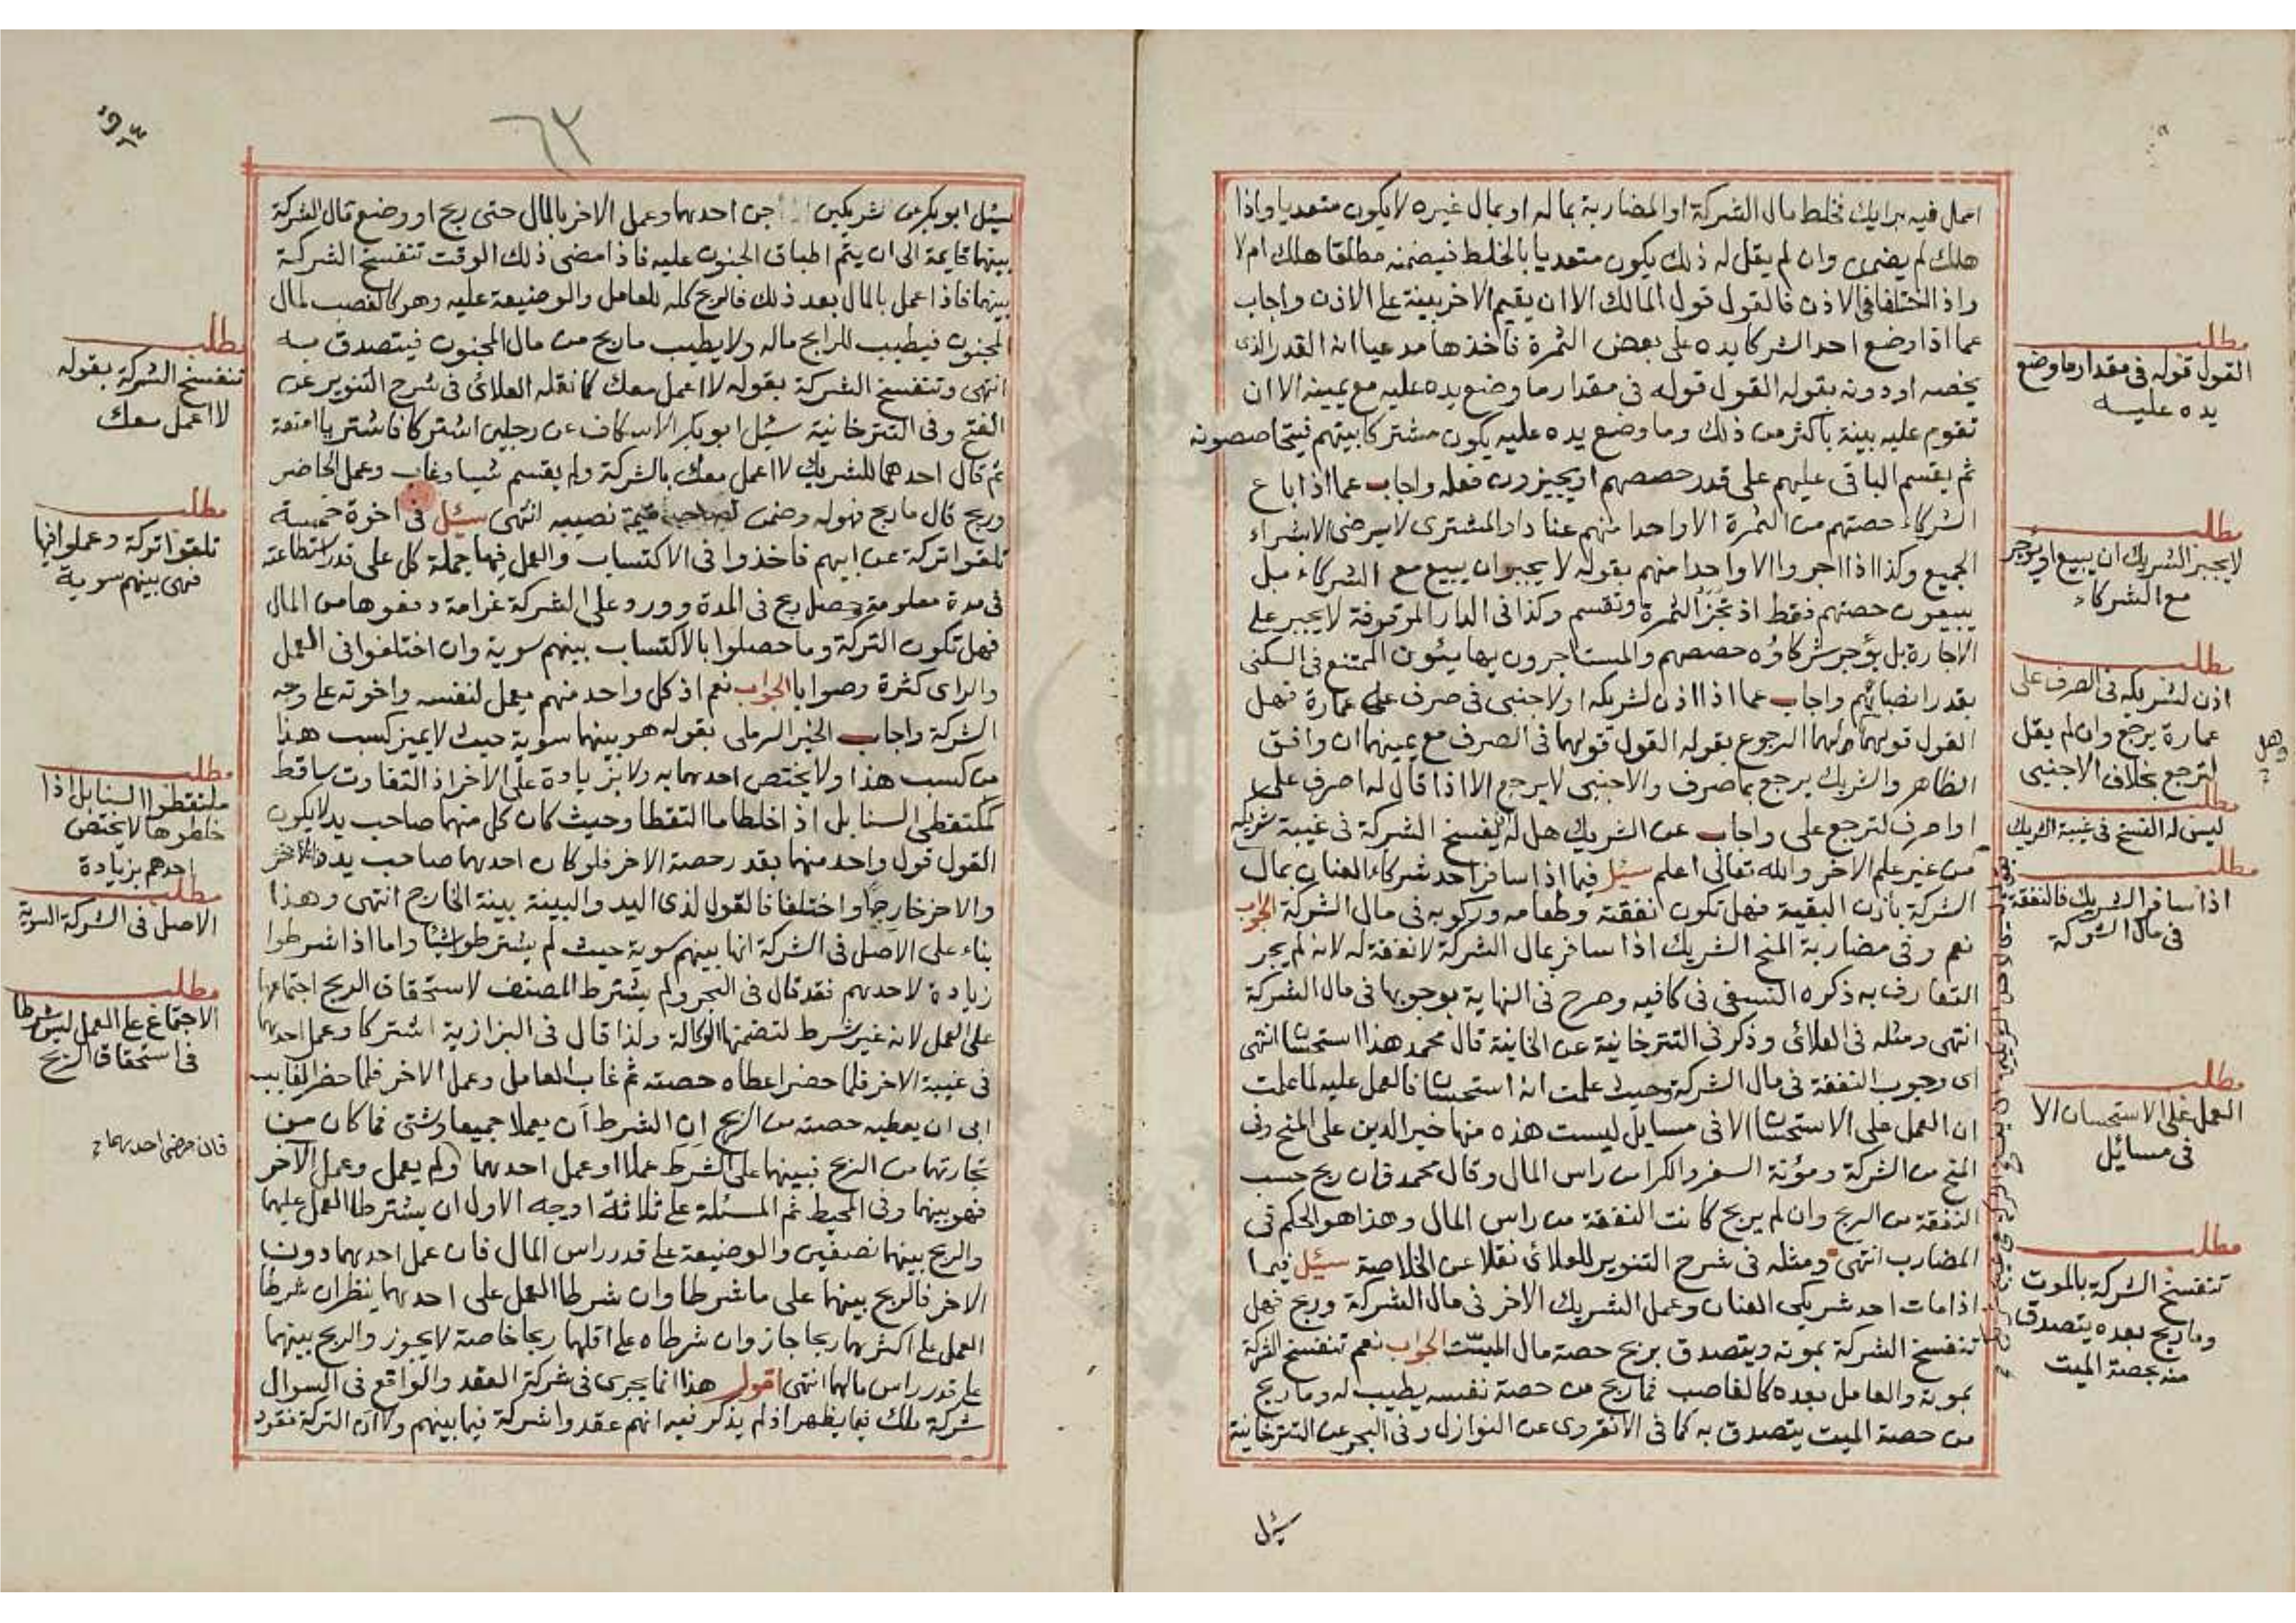 اعمل فيه برايك فخلط مال الشركة او المضاربة بماله او بمال غيره لا يكون متعديا واذا
هلك لم يضمن وان لم يقل له ذلك يكون متعديا بالخلط فيضمنه مطلقا هلك ام لا
واذا اختلفا في الاذن فالقول قول المالك الا ان يقيم الاخر بينة على الاذن واجاب
عما اذا وضع احد الشركا يده على بعض الثمرة فأخذها مدعيا انه القدر الذي
يخصه او دونه بقوله القول قوله في مقدار ما وضع يده عليه مع يمينه الا ان
تقوم عليه بينة باكثر من ذلك وما وضع يده عليه يكون مشتركا بينهم فيتحاصصونه
ثم يقسم الباقي عليهم على قدر حصصهم او يجيزون فعله واجاب عما اذا باع
الشركاء حصتهم من الثمرة الا واحدا منهم عنادا والمشتري لا يرضى الا بشراء
الجميع وكذا اذا اجروا الا واحدا منهم بقوله لا يجبر ان يبيع مع الشركاء بل
يبيعون حصتهم فقط اذ تجز الثمرة وتقسم وكذا في الدار الموقوفة لا يجبر على
الاجارة بل يؤجر شركاؤه حصصهم والمستاجرون يهايئون الممتنع في السكنى
بقدر انصبائهم واجاب عما اذا اذن لشريكه او لاجنبي في صرف على عمارة فهل
القول قولهما ولهما الرجوع بقوله القول قولهما في الصرف مع يمينهما ان وافق
الظاهر والشريك يرجع بما صرف والاجنبي لا يرجع الا اذا قال له اصرف على
او اصرف لترجع على واجاب عن الشريك هل له يفسخ الشركة في غيبة شريكه
من غير علم الاخر والله تعالى اعلم سئل فيما اذا سافر احد شركاء العنان بمال
الشركة باذن البقية فهل تكون نفقته وطعامه وركوبه في مال الشركة الجواب
نعم وفي مضاربة المنح الشريك اذا سافر بمال الشركة لا نفقة له لانه لم يجر
التعارف به ذكره النسفي في كافيه وصرح في النهاية بوجوبها في مال الشركة
انتهى ومثله في العلائي وذكر في التترخانية عن الخانية قال محمد هذا استحسان انتهى
اى وجوب النفقة في مال الشركة وحيث علمت انه استحسان فالعمل عليه لما علمت
ان العمل على الاستحسان الا في مسايل ليست هذه منها خير الدين على المنح وفي
المنح من الشركة ومؤنة السفر والكرا من راس المال وقال محمد فان ربح حسب
النفقة من الربح وان لم يربح كانت النفقة من راس المال وهذا هو الحكم في
المضارب انتهى ومثله في شرح التنوير للعلائي نقلا عن الخلاصة سئل فيما
اذا مات احد شريكى العنان وعمل الشريك الاخر في مال الشركة وربح فهل
تنفسخ الشركة بموته ويتصدق بربح حصة مال الميت الجواب نعم تنفسخ الشركة
بموته والعامل بعده كالغاصب فما ربح من حصة نفسه يطيب له وما ربح
من حصة الميت يتصدق به كما في الانقروى عن النوازل وفي البحر عن التترخانية
سئل
مطلب
القول قوله في مقدار ما وضع
يده عليه
مطلب
لا يجبر الشريك ان يبيع او يؤجر
مع الشركاء
مطلب
اذن لشريكه في الصرف على
عمارة يرجع وان لم يقل
لترجع بخلاف الاجنبي
مطلب
ليس له الفسخ في غيبة الشريك
مطلب
اذا سافر الشريك فالنفقة
في مال الشركة
مطلب
العمل على الاستحسان الا
في مسائل
مطلب
تنفسخ الشركة بالموت
وما ربح بعده يتصدق
منه بحصة الميت
وهل
٦٣
سئل ابو بكر عن شريكين جن احدهما وعمل الاخر بالمال حتى ربح او وضع قال الشركة
بينهما قايمة الى ان يتم اطباق الجنون عليه فاذا مضى ذلك الوقت تنفسخ الشركة
بينهما فاذا عمل بالمال بعد ذلك فالربح كله للعامل والوضيعة عليه وهو كالغصب لمال
المجنون فيطيب للرابح ماله ولا يطيب ما ربح من مال المجنون فيتصدق به
انتهى وتنفسخ الشركة بقوله لا اعمل معك كما نقله العلائي في شرح التنوير عن
الفتح وفي التترخانية سئل ابو بكر الاسكاف عن رجلين اشتركا فاشتريا امتعة
ثم قال احدهما للشريك لا اعمل معك بالشركة ولم يقسم شيا وغاب وعمل الحاضر
وربح قال ما ربح فهو له وضمن لصاحبه قيمة نصيبه انتهى سئل في اخوة خمسة
تلقوا تركة عن ابيهم فاخذوا في الاكتساب والعمل فيها جملة كل على قدر استطاعته
في مدة معلومة وحصل ربح في المدة وورد على الشركة غرامة دفعوها من المال
فهل تكون التركة وما حصلوا بالاكتساب بينهم سوية وان اختلفوا في العمل
والراى كثرة وصوابا الجواب نعم اذ كل واحد منهم يعمل لنفسه واخوته على وجه
الشركة واجاب الخير الرملى بقوله هو بينهما سوية حيث لا يميز كسب هذا
من كسب هذا ولا يختص احدهما به ولا بزيادة على الاخر اذ التفاوت ساقط
كملتقطى السنابل اذ اخلطا ما التقطا وحيث كان كل منهما صاحب يد لا يكون
القول قول واحد منهما بقدر حصة الاخر فلو كان احدهما صاحب يد والاخر
والاخر خارجا واختلفا فالقول لذى اليد والبينة بينة الخارج انتهى وهذا
بناء على الاصل في الشركة انها بينهم سوية حيث لم يشترطوا شيئا واما اذا شرطوا
زيادة لاحدهم فقد قال في البحر ولم يشترط المصنف لاستحقاق الربح اجتماعهما
على العمل لانه غير شرط لتضمنها الوكالة ولذا قال في البزازية اشتركا وعمل احدهما
في غيبة الاخر فلما حضر اعطاه حصته ثم غاب العامل وعمل الاخر فلما حضر الغايب
ابى ان يعطيه حصته من الربح ان الشرط ان يعملا جميعا وشتى فما كان من
تجارتهما من الربح فبينهما على الشرط عملا او عمل احدهما ولم يعمل وعمل الآخر
فهو بينهما وفي المحيط ثم المسئلة على ثلاثة اوجه الاول ان يشترطا العمل عليهما
والربح بينهما نصفين والوضيعة على قدر راس المال فان عمل احدهما دون
الاخر فالربح بينهما على ما شرطا وان شرطا العمل على احدهما ينظر ان شرطا
العمل على اكثرهما ربحا جاز وان شرطاه على اقلهما ربحا خاصة لا يجوز والربح بينهما
على قدر راس مالهما انتهى اقول هذا انما يجرى في شركة العقد والواقع في السوال
شركة ملك فيما يظهر اذ لم يذكر فيه انهم عقدوا شركة فيما بينهم ولا ان التركة نقود
مطلب
تنفسخ الشركة بقوله
لا اعمل معك
مطلب
تلقوا تركة وعملوا فيها
فهى بينهم سوية
مطلب
ملتقطوا السنابل اذا
خلطوها لا يختص
احدهم بزيادة
مطلب
الاصل في الشركة السوية
مطلب
الاجتماع على العمل ليس شرطا
في استحقاق الربح
فان مرض احدهما